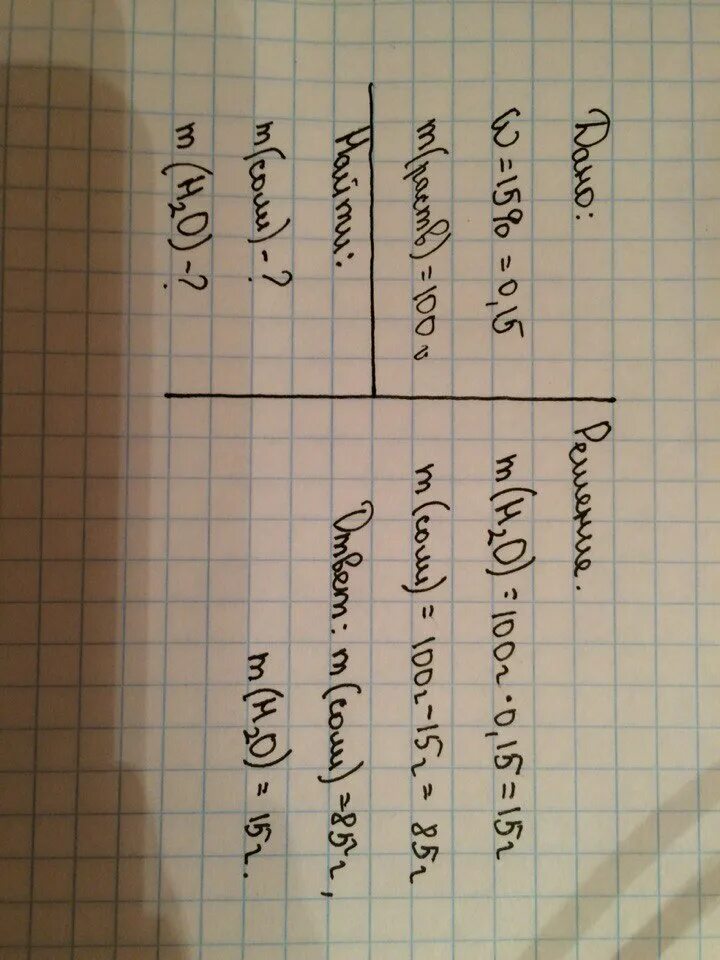 Дано:
ω = 15% = 0,15
m(раств) = 100 г
Найти:
m(соли) - ?
m(H₂O) - ?
Решение.
m(H₂O) = 100г · 0,15 = 15г
m(соли) = 100г - 15г = 85г
Ответ: m(соли) = 85г,
m(H₂O) = 15г.